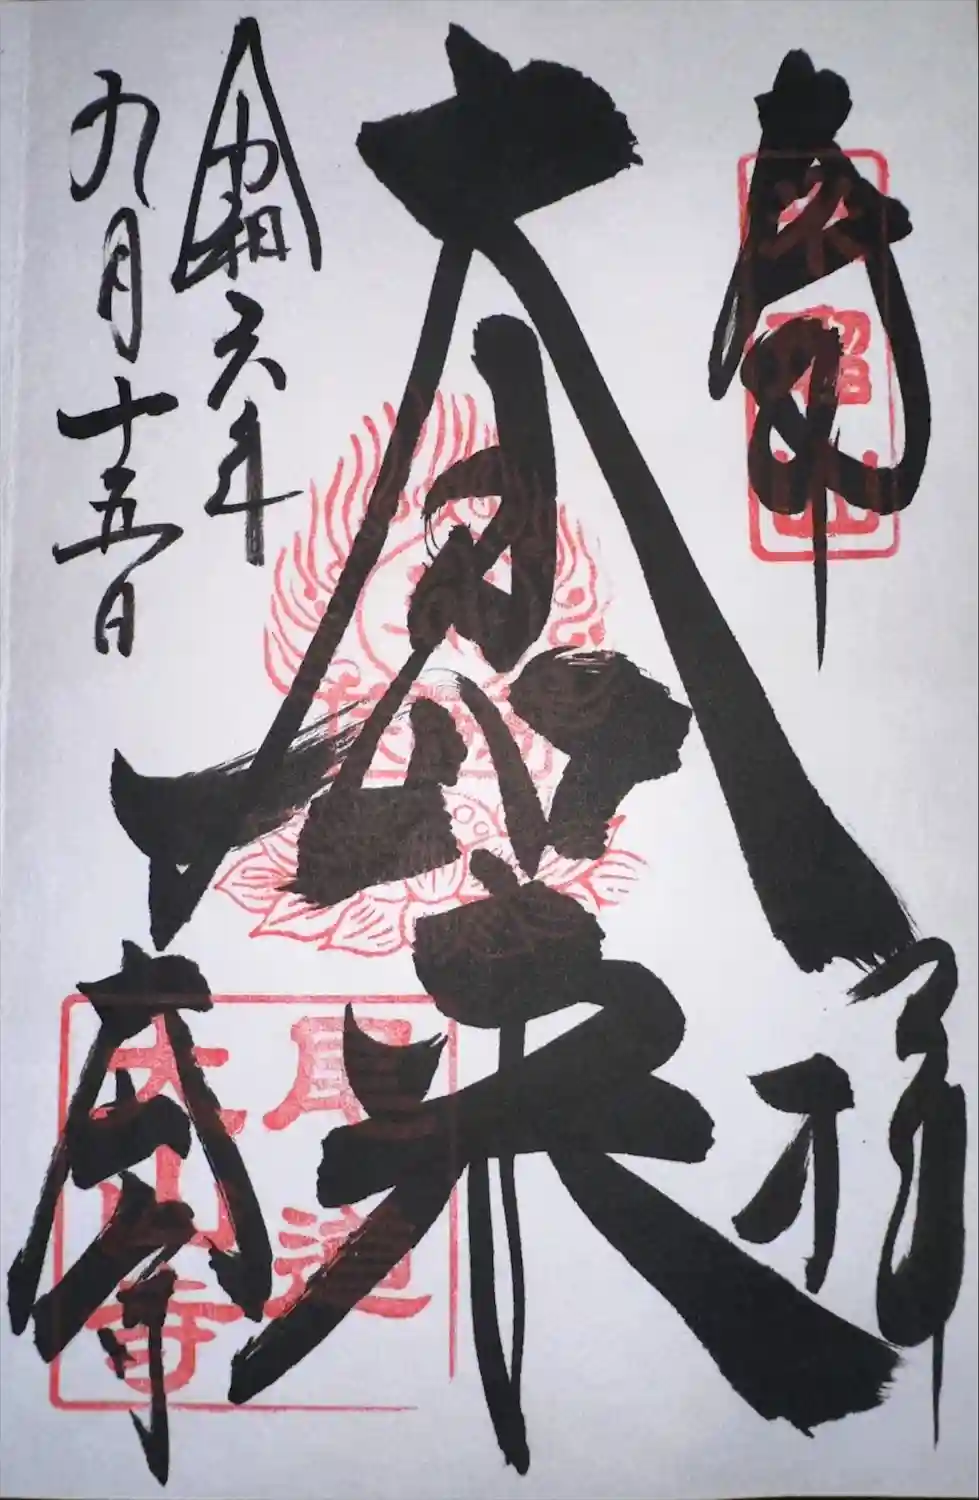 奉拝
大日如来
大山寺
令和六年
九月十五日
尾道
大山寺